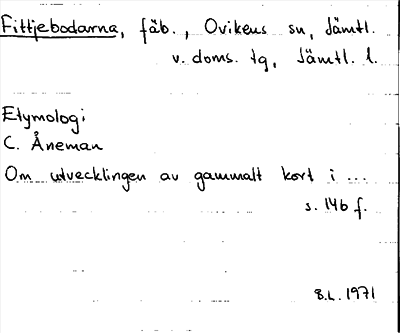 Fittjebodarna, fäb., Ovikens sn, Jämtl.
v. doms. tg, Jämtl. l.
Etymologi
C. Åneman
Om utvecklingen av gammalt kort i ...
s. 146 f.
8.L.1971